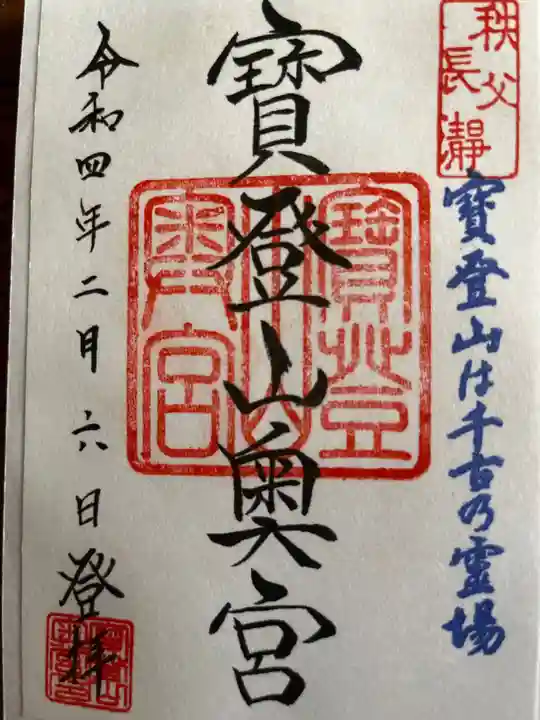 秩父
長瀞
寶登山は千古乃霊場
寶登山奥宮
寶登山奥宮
令和四年二月六日登拝